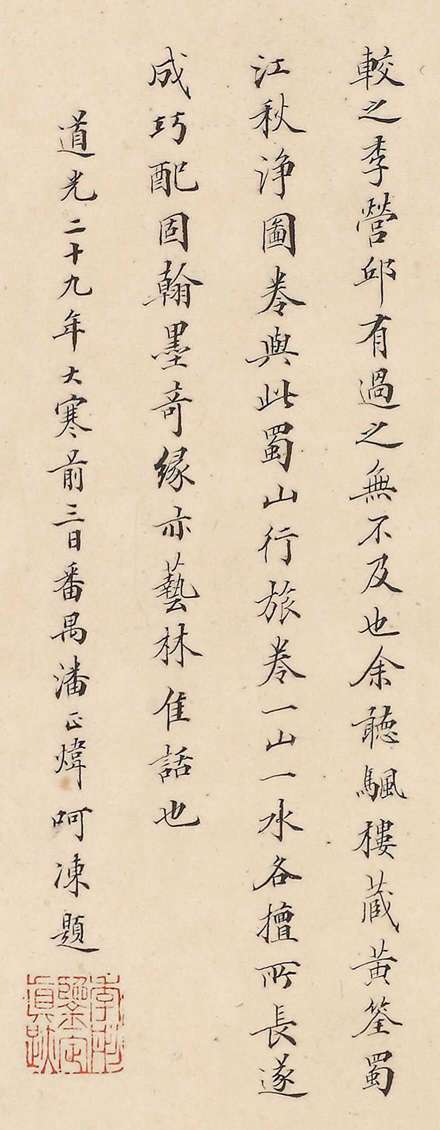 較之李營邱有過之無不及也余聽颿樓藏黃筌蜀
江秋淨圖卷與此蜀山行旅卷一山一水各擅所長遂
成巧配固翰墨奇緣亦藝林佳話也
道光二十九年大寒前三日番禺潘正煒呵凍題